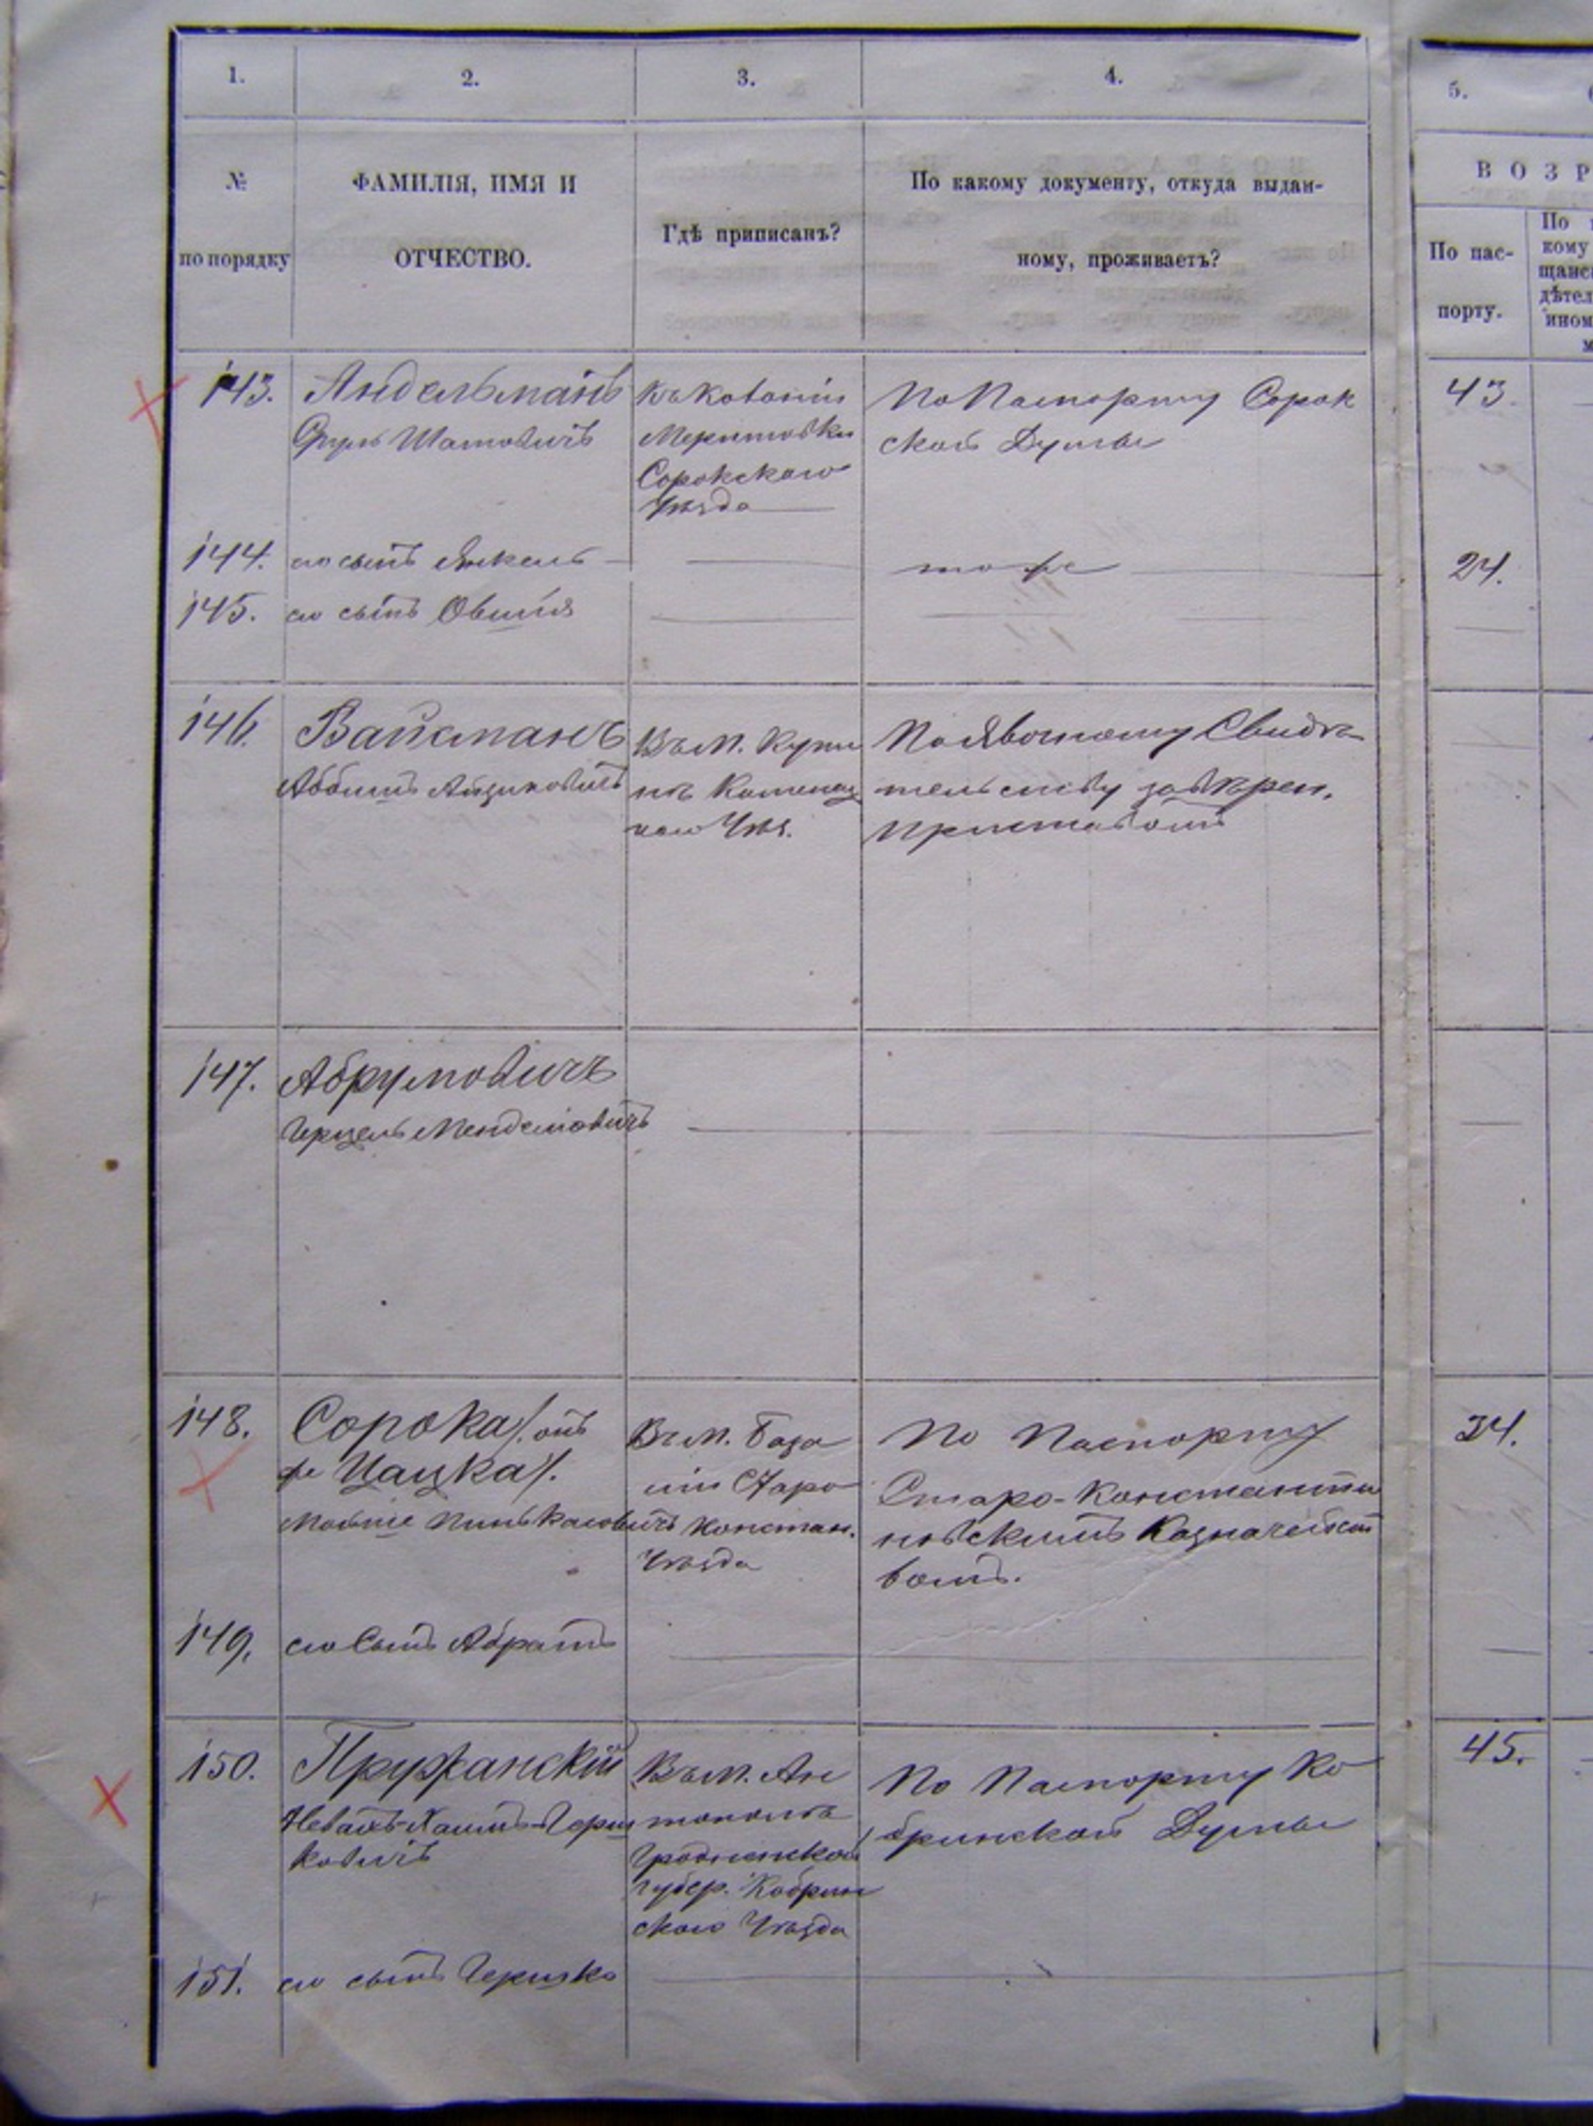 1. 2. 3. 4. 5.
№ по порядку
ФАМИЛІЯ, ИМЯ И
ОТЧЕСТВО.
Гдѣ приписанъ?
По какому документу, откуда выдан-
ному, проживаетъ?
ВОЗР
По пас-
порту.
По
кому
щанс
дѣтел
ином
м
143. Андельманъ
Сруль Шамовичъ
Въ Колоніи
Меритовки
Сорокскаго
Уѣзда
По Паспорту Сорок
ской Думы
43.
144. его сынъ Янкель
тоже
24.
145. его сынъ Овшія
146. Вайсманъ
Аббишъ Айзиковичъ
Въ М. Купи
нѣ Каменец
каго Уѣз.
По Явочному Свидѣ
тельству завѣрен.
Приставомъ
147. Абрумовичъ
Герцель Менделіовичъ
148. Сорока /: онъ
же Цацка /.
Мошие Пиньхасовичъ
Въ М. База
ліи Старо
Констан.
Уѣзда
По Паспорту
Старо-Константи
новскимъ Казначейст
вомъ.
34.
149. его Сынъ Абрамъ
150. Пружанскій
Невахъ-Хаимъ-Герш
ковичъ
Въ М. Ан
тополѣ
Гродненской
губер. Кобрин
скаго Уѣзда
По Паспорту Ко
бринской Думы
45.
151. его сынъ Гершко